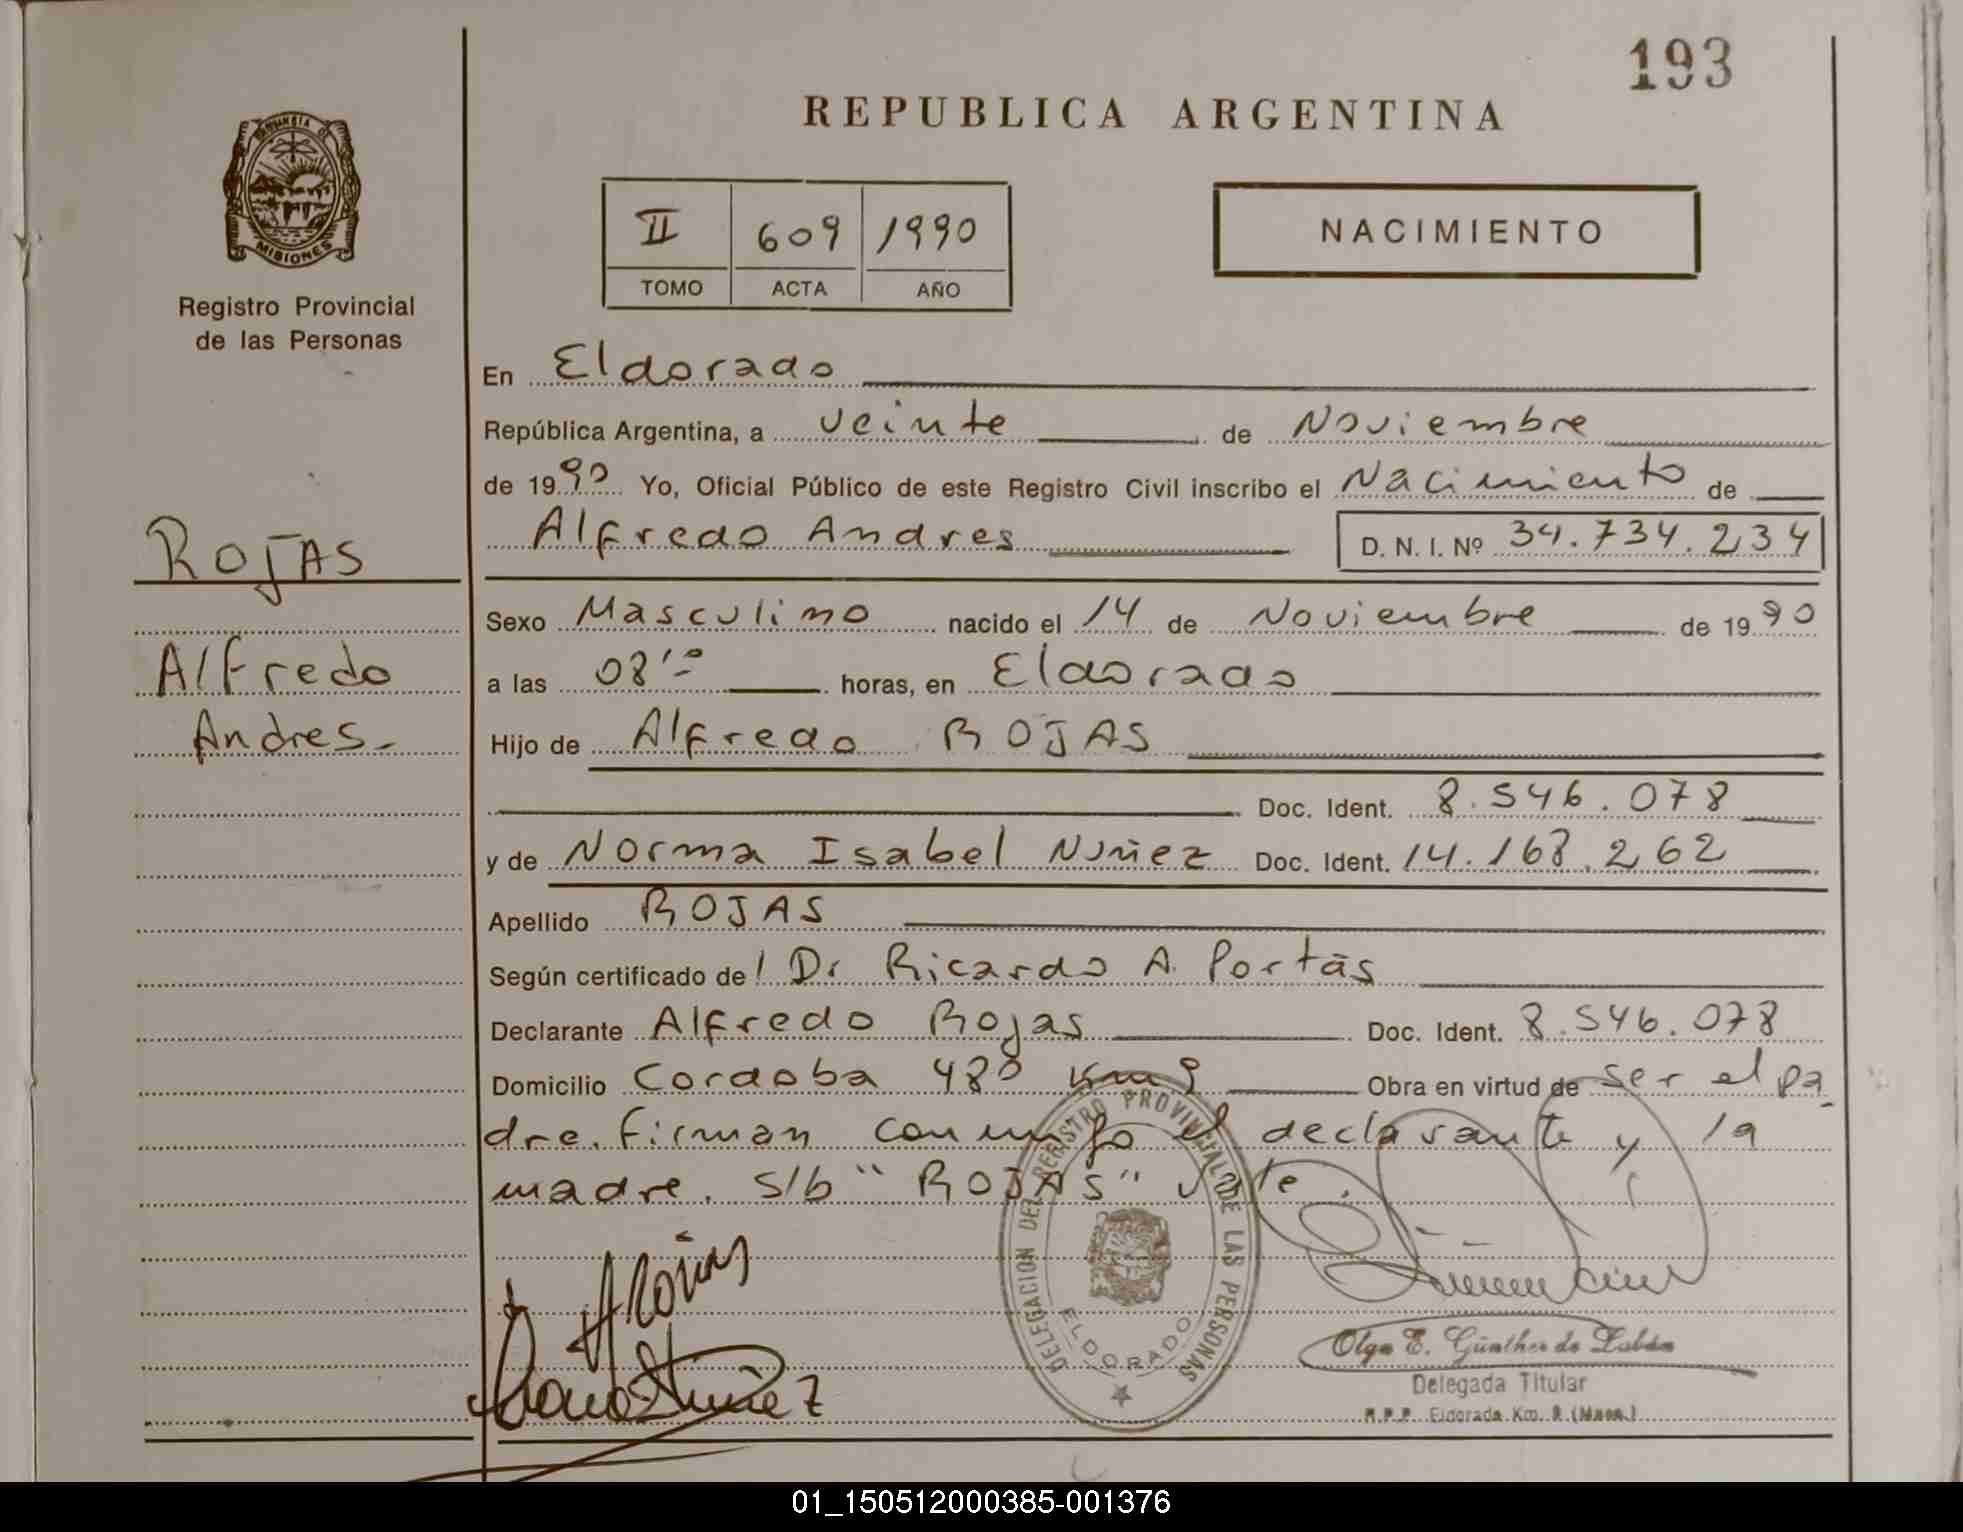 193
REPUBLICA ARGENTINA
PROVINCIA DE
MISIONES
Registro Provincial
de las Personas
II 609 1990
TOMO ACTA AÑO
NACIMIENTO
En Eldorado
República Argentina, a veinte de Noviembre
de 1990 Yo, Oficial Público de este Registro Civil inscribo el Nacimiento de
Alfredo Andres D. N. I. Nº 34.734.234
ROJAS
Alfredo
Andres.
Sexo Masculino nacido el 14 de Noviembre de 1990
a las 08'º horas, en Eldorado
Hijo de Alfredo ROJAS
Doc. Ident. 8.546.078
y de Norma Isabel Nuñez Doc. Ident. 14.168.262
Apellido ROJAS
Según certificado del Dr Ricardo A. Portas
Declarante Alfredo Rojas Doc. Ident. 8.546.078
Domicilio Cordoba 480 km 9 Obra en virtud de ser el pa
dre. Firman conmigo el declarante y la
madre. S/b "ROJAS" vale.
ARojas
Nuñez
DELEGACION DEL REGISTRO PROVINCIAL DE LAS PERSONAS
ELDORADO
Olga E. Günther de Labán
Delegada Titular
R.P.P. Eldorado Km. 9 (Mnes.)
01_150512000385-001376